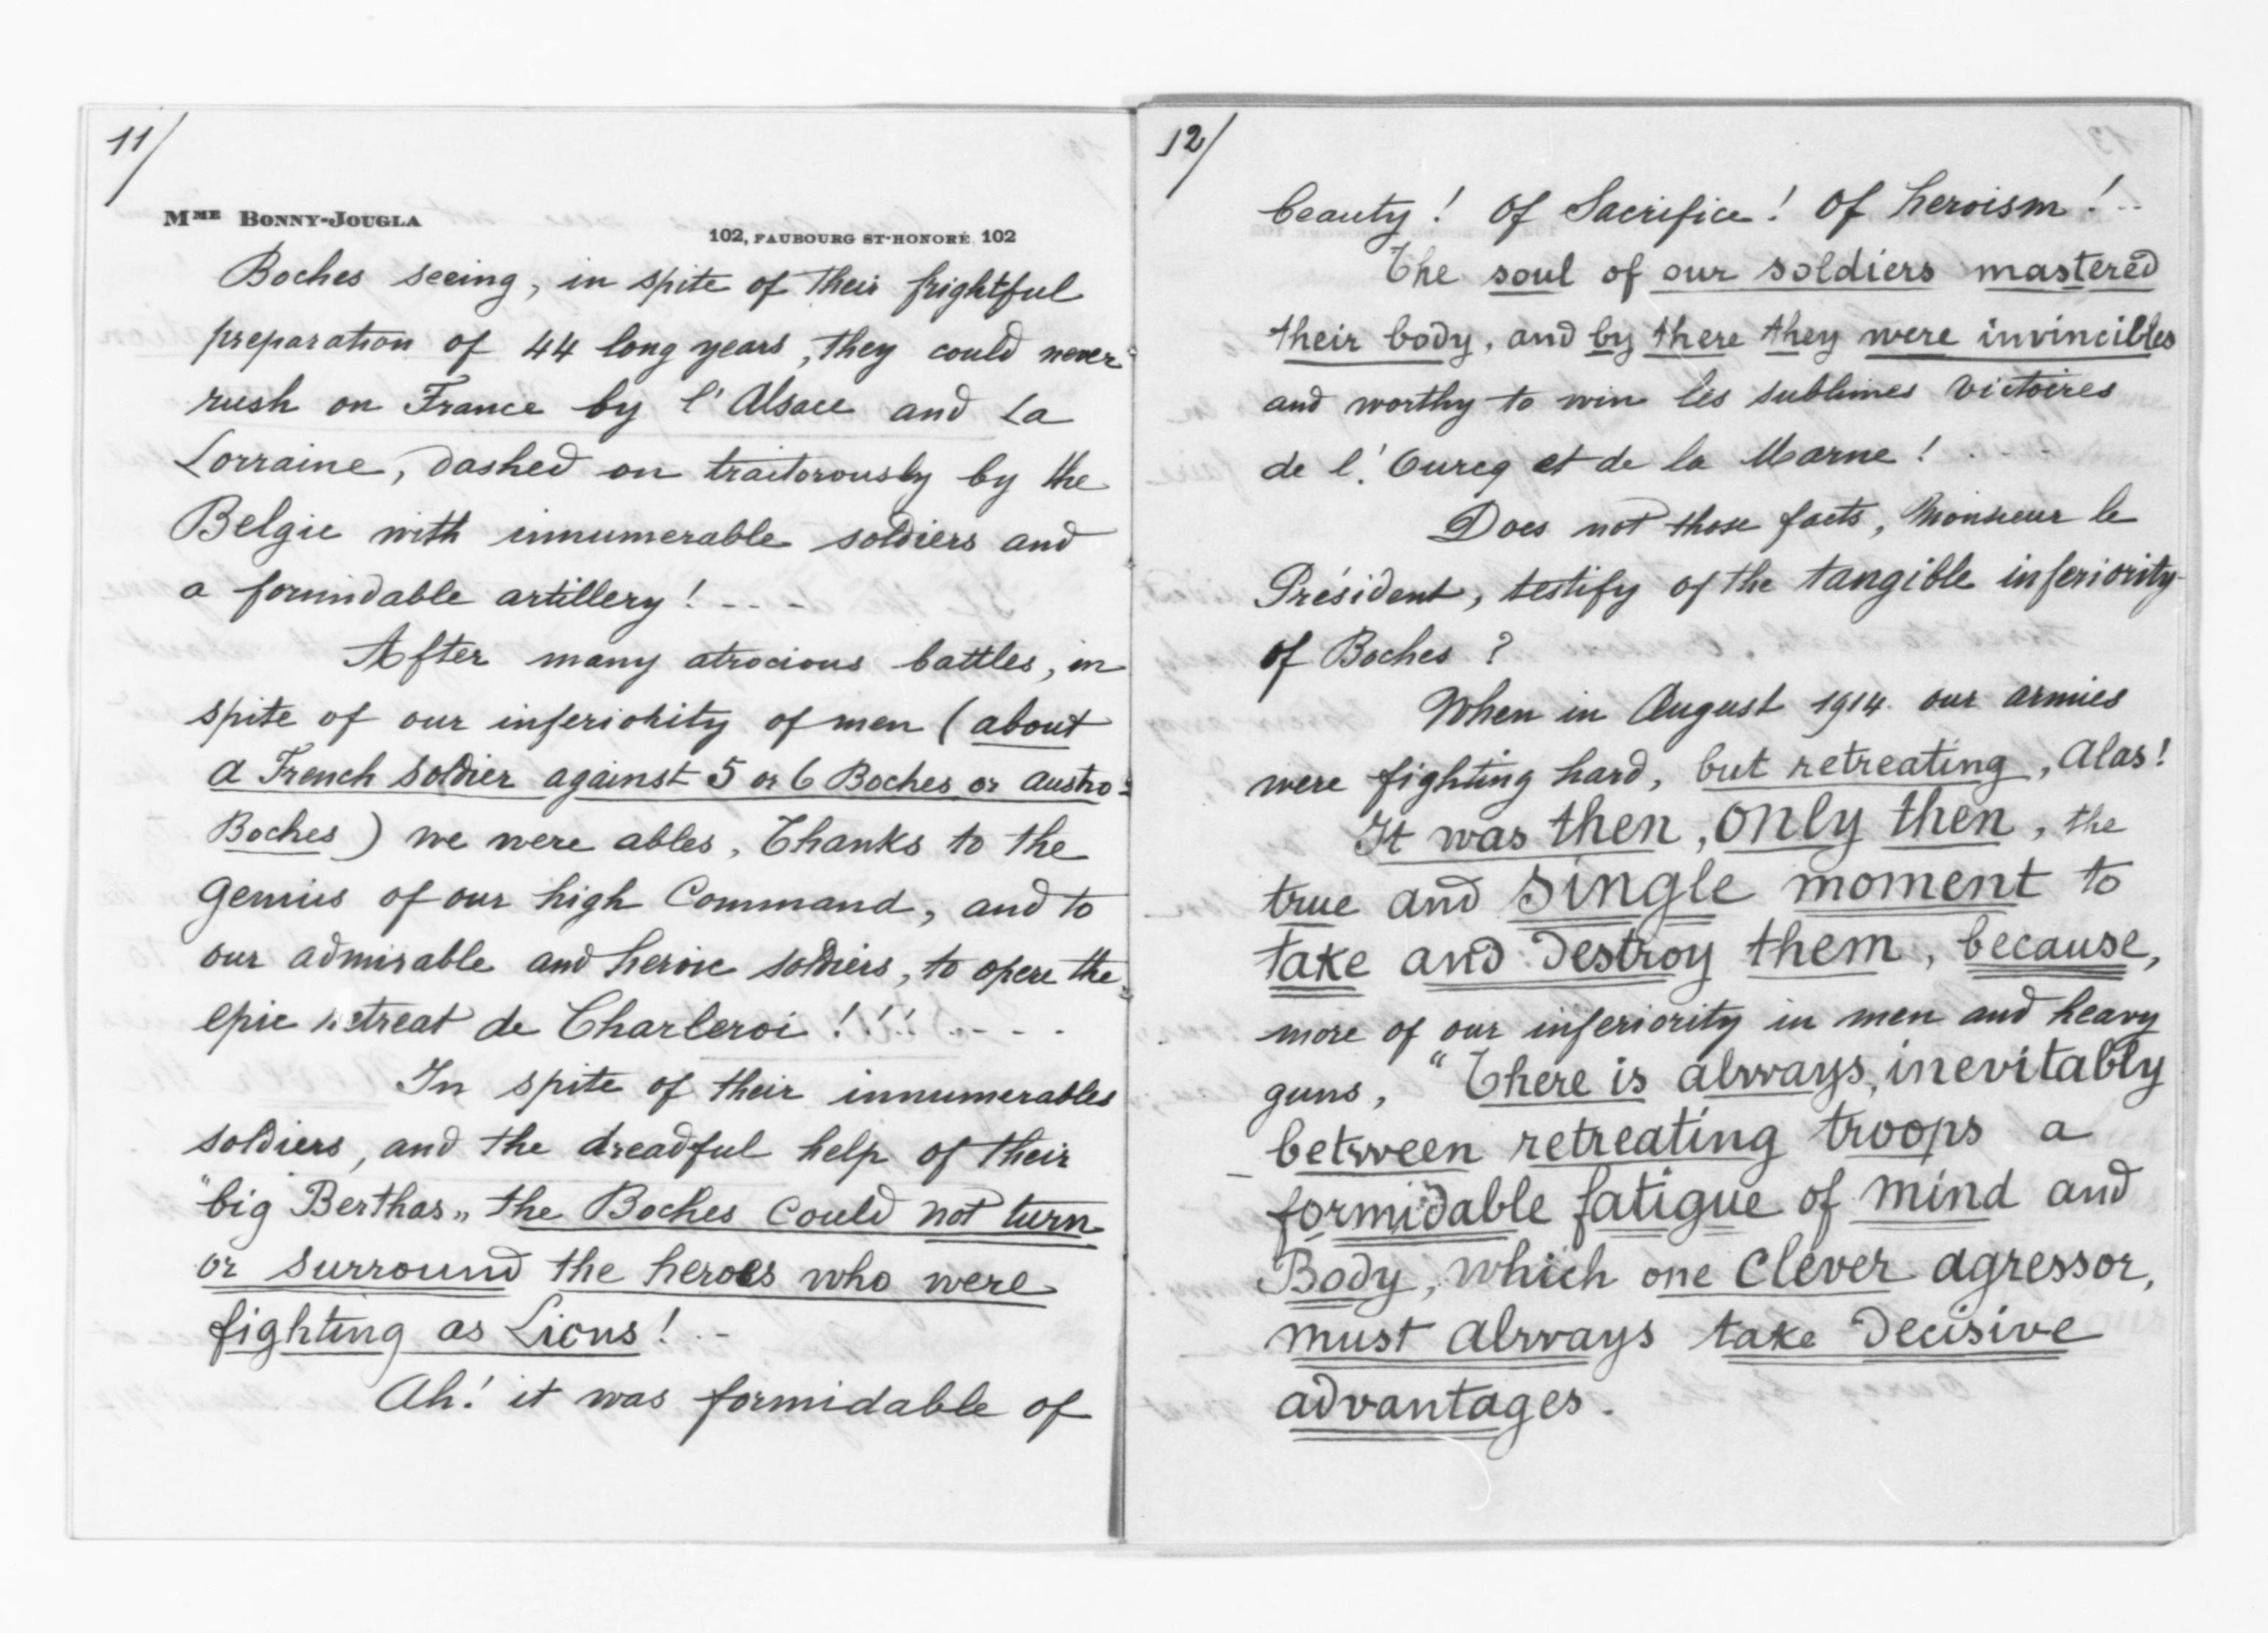 11/
MME BONNY-JOUGLA
102, FAUBOURG ST-HONORÉ 102
Boches seeing, in spite of their frightful
preparation of 44 long years, they could never
rush on France by l'Alsace and La
Lorraine, dashed on traitorously by the
Belgie with innumerable soldiers and
a formidable artillery! - - -
After many atrocious battles, in
spite of our inferiority of men (about
a French soldier against 5 or 6 Boches or austro-
Boches) we were ables, Thanks to the
genius of our high Command, and to
our admirable and heroic soldiers, to opere the
epic retreat de Charleroi!!! - - - -
In spite of their innumerables
soldiers, and the dreadful help of their
"big Berthas" the Boches could not turn
or surround the heroes who were
fighting as Lions! - -
Ah! it was formidable of
12/
beauty! Of Sacrifice! Of heroism! - -
The soul of our soldiers mastered
their body, and by there they were invincibles
and worthy to win les sublimes victoires
de l'Ourcq et de la Marne! - - -
Does not those facts, Monsieur le
Président, testify of the tangible inferiority
of Boches?
When in August 1914 our armies
were fighting hard, but retreating, Alas!
It was then, only then, the
true and single moment to
take and destroy them, because,
more of our inferiority in men and heavy
guns, "There is always, inevitably
between retreating troops a
formidable fatigue of mind and
Body, which one clever agressor,
must always take decisive
advantages.